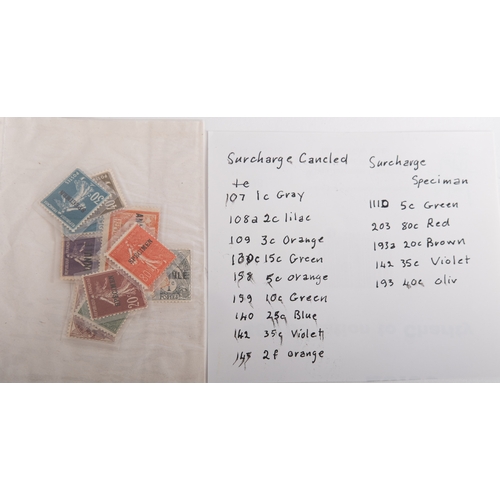 Surcharge Cancled
te
107 1c Gray
108a 2c lilac
109 3c Orange
130c 15c Green
158 5c orange
159 10c Green
140 25c Blue
142 35c Violett
145 2f orange
Surcharge
Speciman
111D 5c Green
203 80c Red
193a 20c Brown
142 35c Violet
193 40c oliv
SPECIMEN